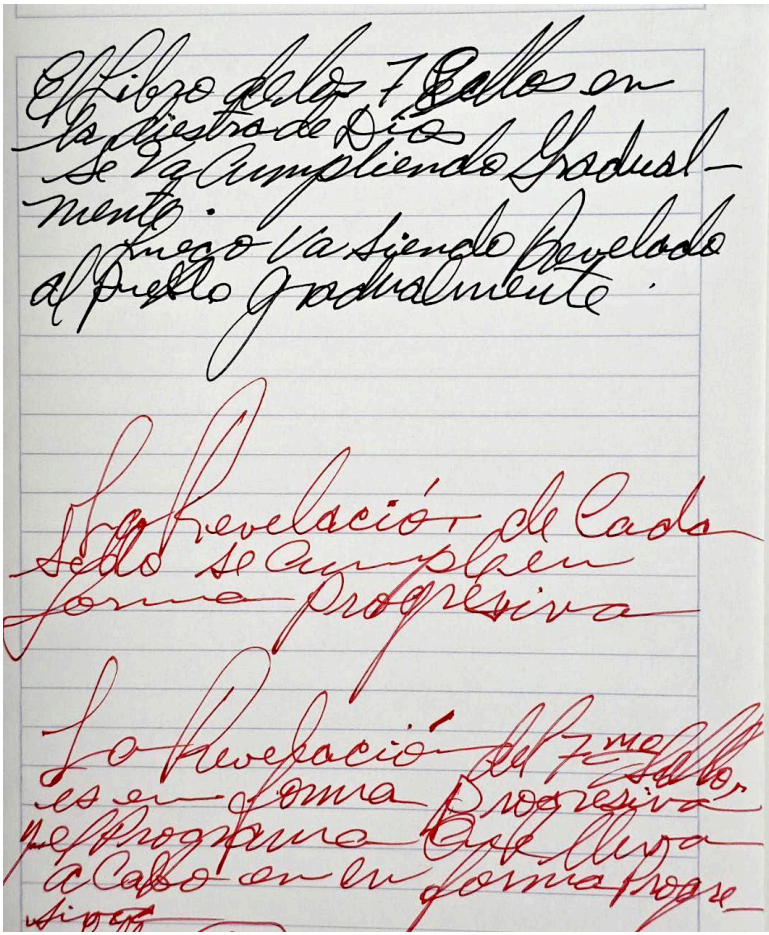 El Libro de los 7 Sellos en
la diestra de Dios
se va Cumpliendo Gradual-
mente.
Luego va siendo Revelado
al pueblo gradualmente.
La Revelación de Cada
Sello se cumple en
forma Progresiva
La Revelación del 7mo Sello,
es en forma Progresiva
y el Programa Que lleva
a Cabo en forma Progre-
siva